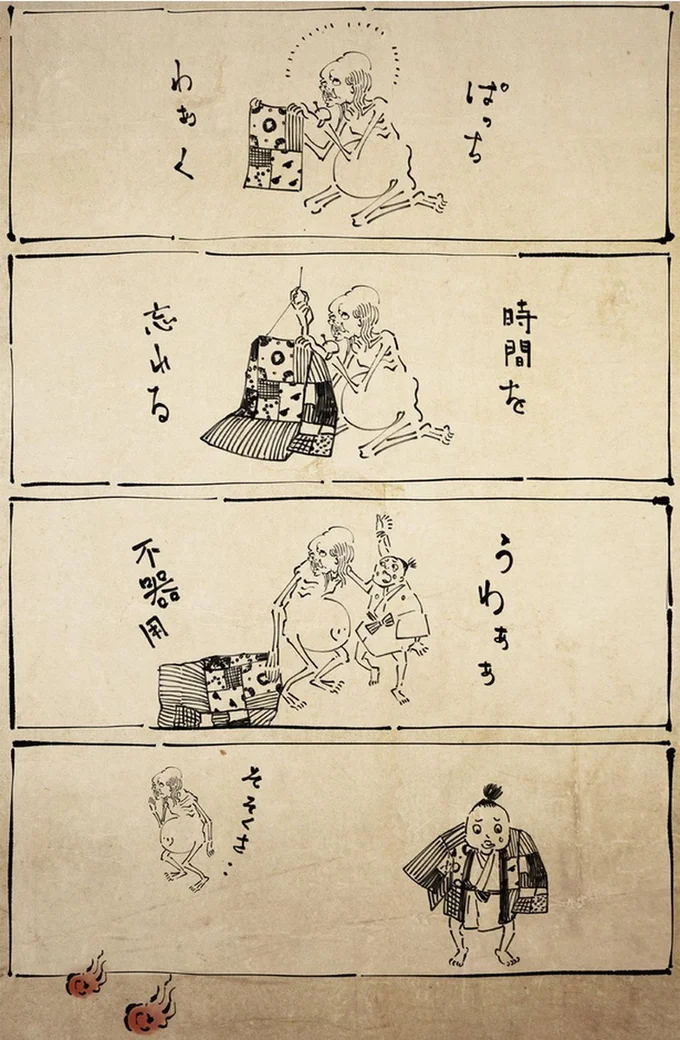 ぱっち
わぁく
時間を
忘れる
うわぁぁ
不器用
そそくさ‥